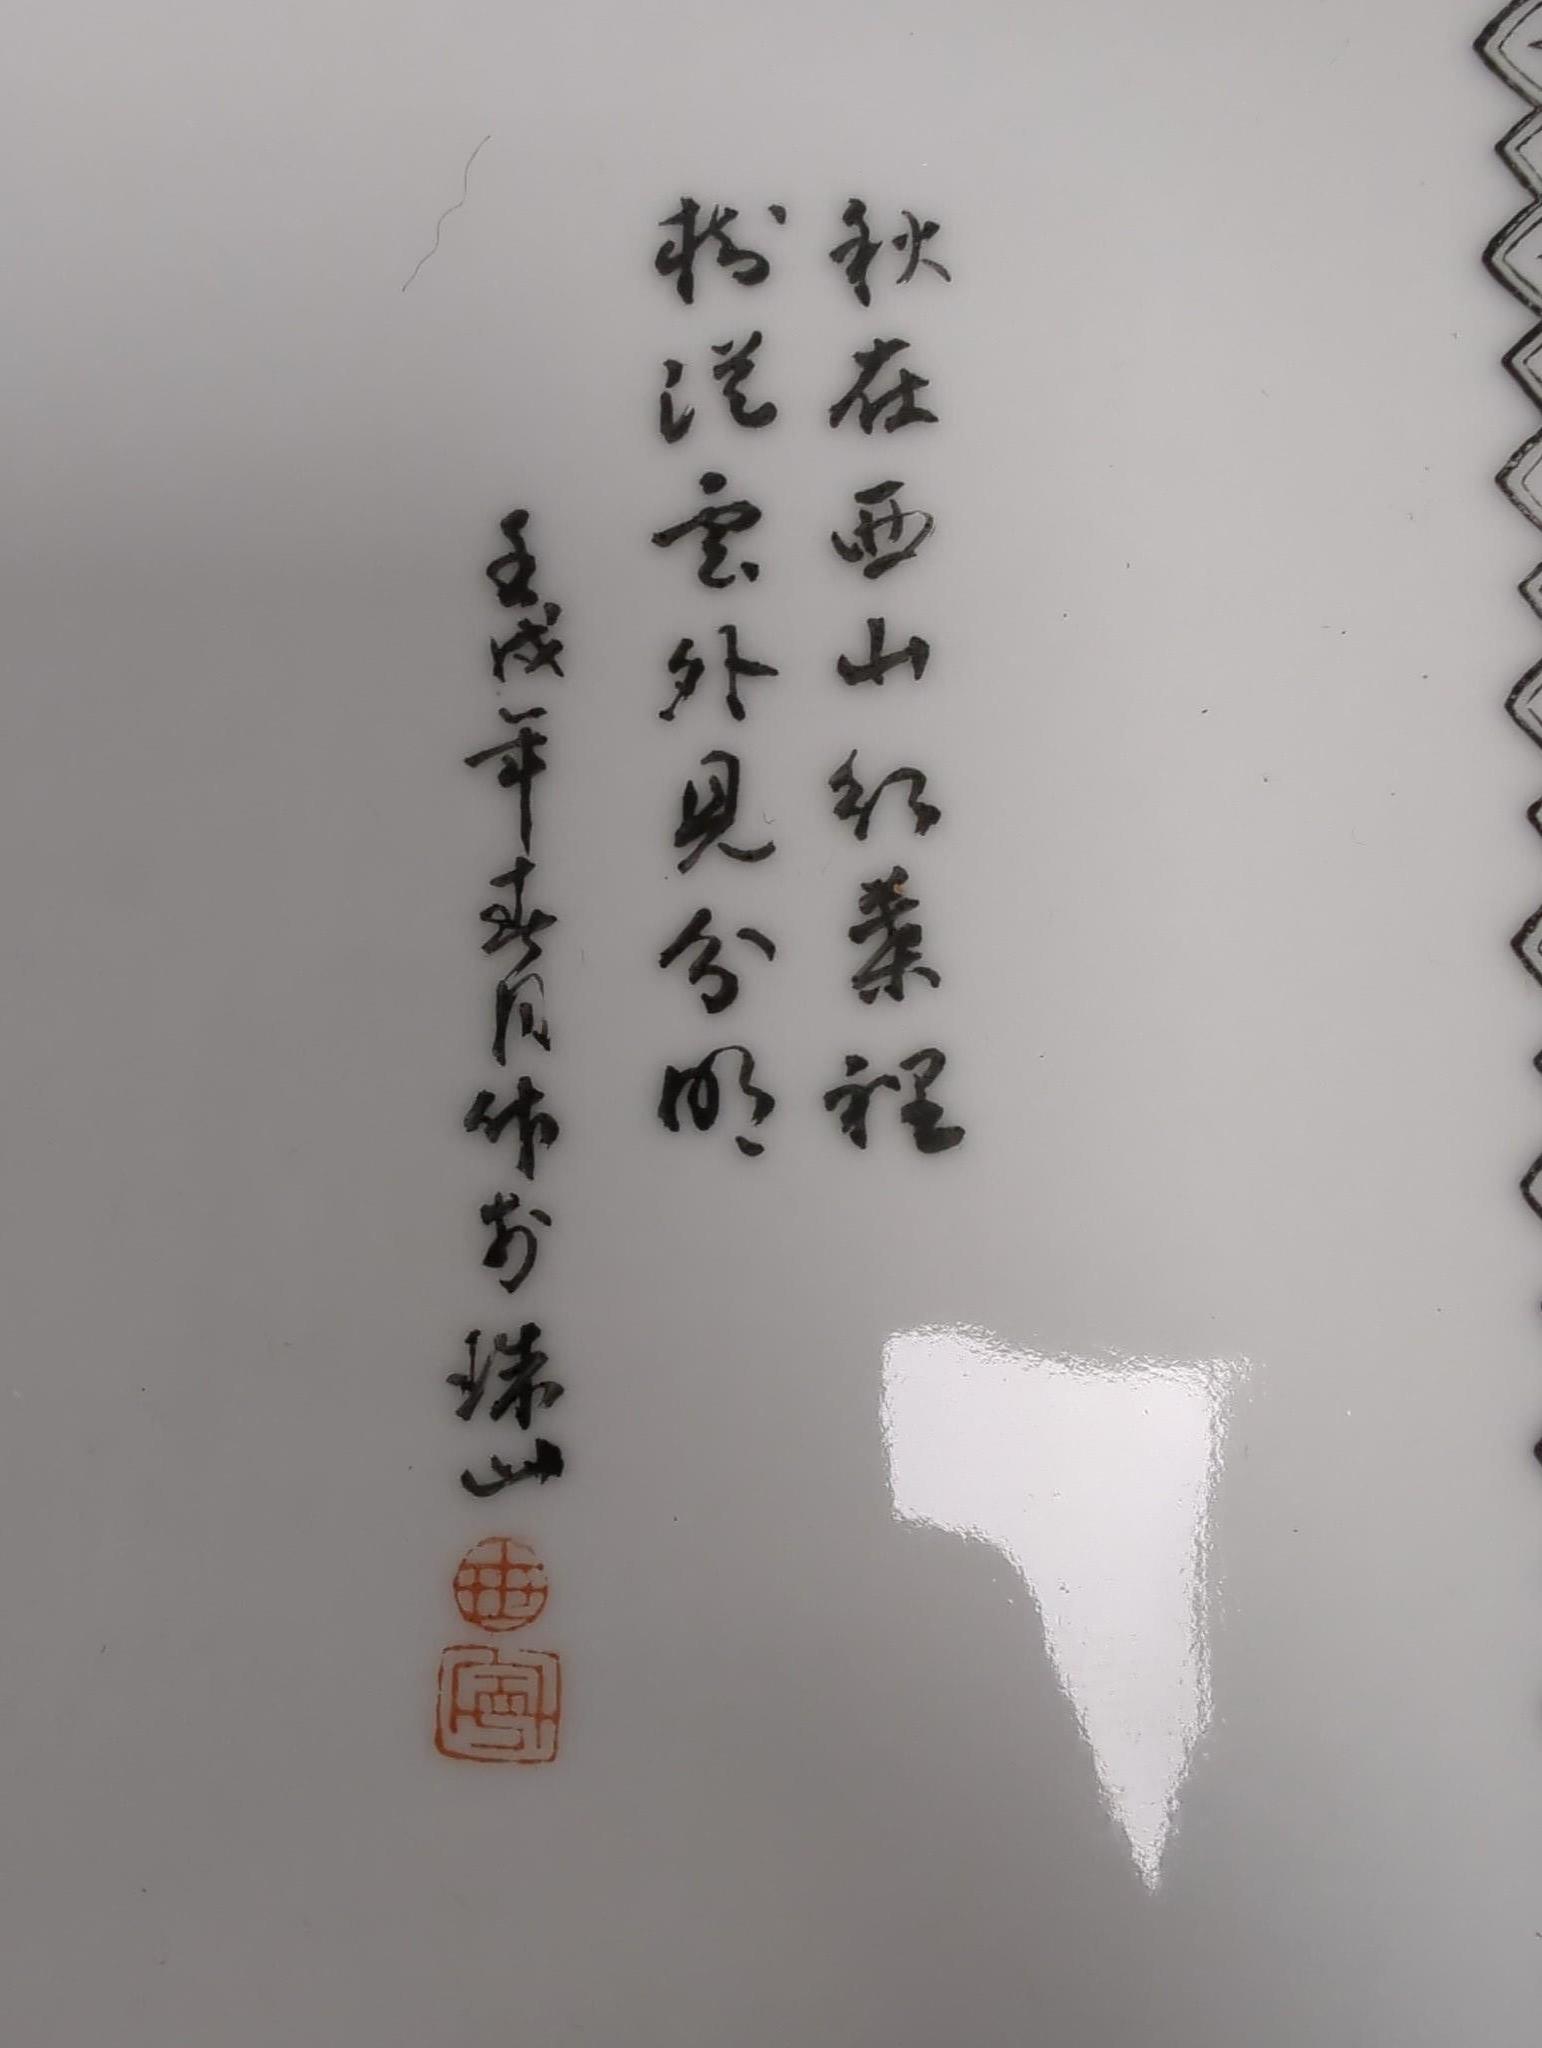 秋在西山红葉裡
樹從雲外見分明
壬戌年春月作於珠山